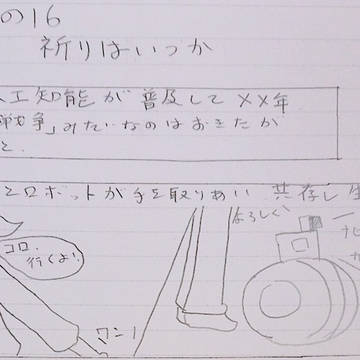 の16
祈りはいつか
人工知能が普及して××年
戦争」みたいなのはおきたが
と.
とロボットが手を取りあい 共存し生
よろしく
コロ.
行くよ!
ワン!
ナビ